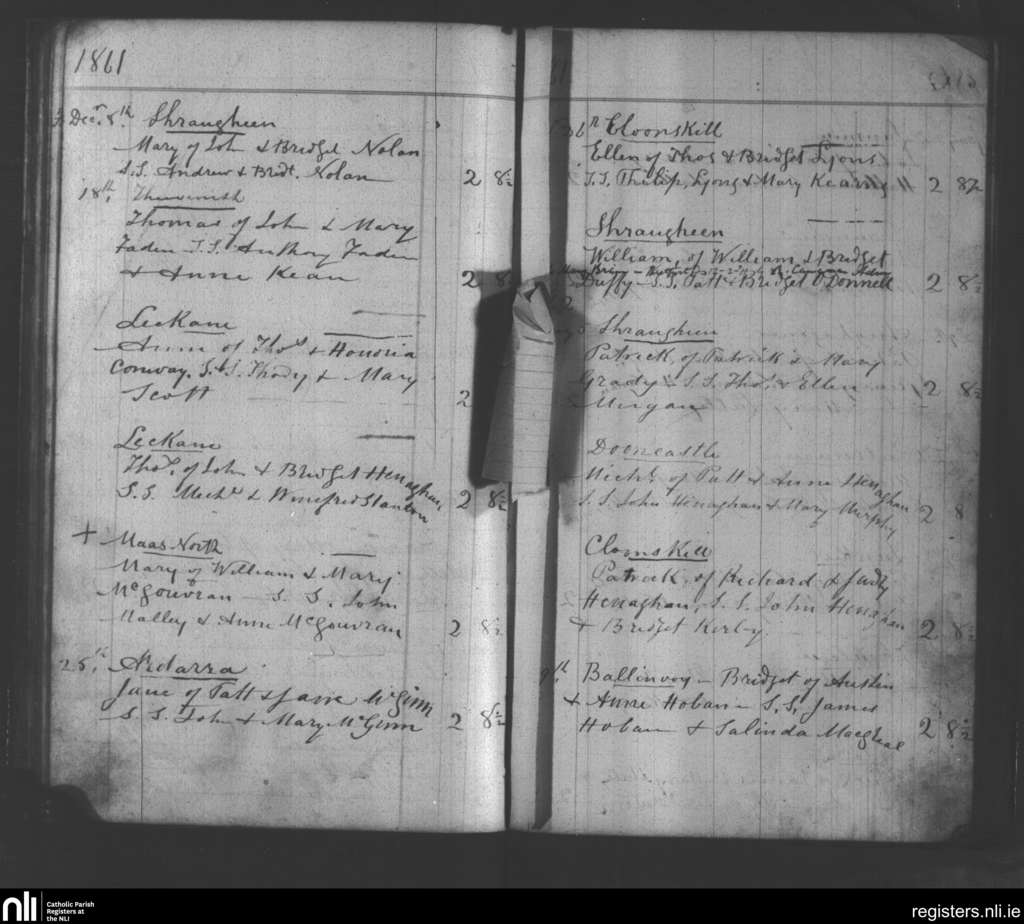 1861
Dec.r 8th. Shraugheen
Mary of Joh & Bridget Nolan
S.S. Andrew & Bridt. Nolan 2 8½
18th.
Thomas of John & Mary
Faden S.S. Anthony Faden
& Anne Kean 2 8½
Leckane
Anne of Thos & Honoria
Conway. S.S. Thody & Mary
Scott 2
Leckane
Thos. of John & Bridget Henaghan
S.S. Michl & Winefred Stanton 2 8½
+ Maas North
Mary of William & Mary
McGouvran S. S. John
Malley & Anne McGouvran 2 8½
25th. Ardarra
Jane of Patt & Jane McGinn
S S. John & Mary McGinn 2 8½
Cloonskill
Ellen of Thos & Bridget Lyons
S.S. Philip Lyons & Mary Kearny 2 8½
Shraugheen
William, of William & Bridget
Duffy - S.S. Patt & Bridget O'Donnell 2 8½
Shraugheen
Patrick of Patrick & Mary
Grady - S S. Thos. & Ellen 2 8½
Morgan
Dooncastle
Michl. of Patt & Anne Henaghan
S. S. John Henaghan & Mary Murphy 2 8
Clomskill
Patrick, of Richard & Judy
Henaghan, S. S. John Henaghan
& Bridget Kerby 2 8½
9th. Ballinvoy - Bridget of Austin
& Anne Hoban - S.S. James
Hoban & Salinda Macghee 2 8½
nli
Catholic Parish
Registers at
the NLI
registers.nli.ie